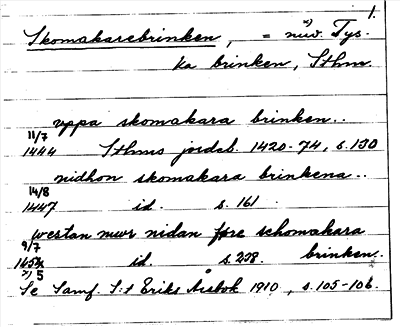 1.
Skomakarebrinken, = nuv. Tys-
ka brinken, Sthm.
uppa skomakara brinken..
11/7
1444 Sthms jordeb. 1420-74, s. 130
nidhon skomakara brinkena..
14/8
1447 id. s. 161
westan mwr nidan före schomakara
9/7
id. s. 258 brinken.
Se Samf. S:t Eriks Årsbok 1910, s. 105-106.